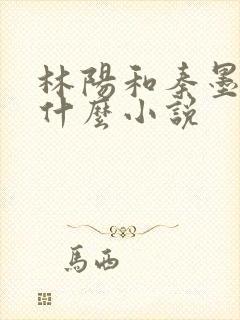 林陽和秦墨
什麼小説
馬西